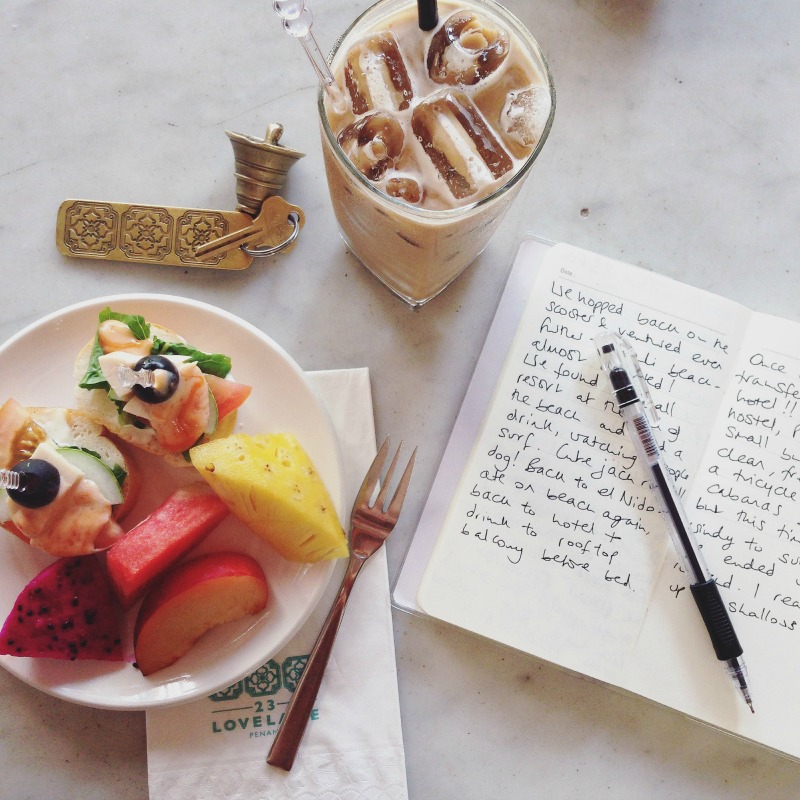 Date
We hopped back on the
scooter & ventured even
further
almost
beach-
We found small
resort at the of
the beach and a
drink, watching
surf. Cute jack
dog! Back to el Nido..
ate on beach again,
back to hotel +
drink to rooftop
balcony before bed.
Once
hotel!!
hostel,
small
clear,
a tricycle
Cabanas
but this
windy to
ended
I
up shallows
23
LOVE